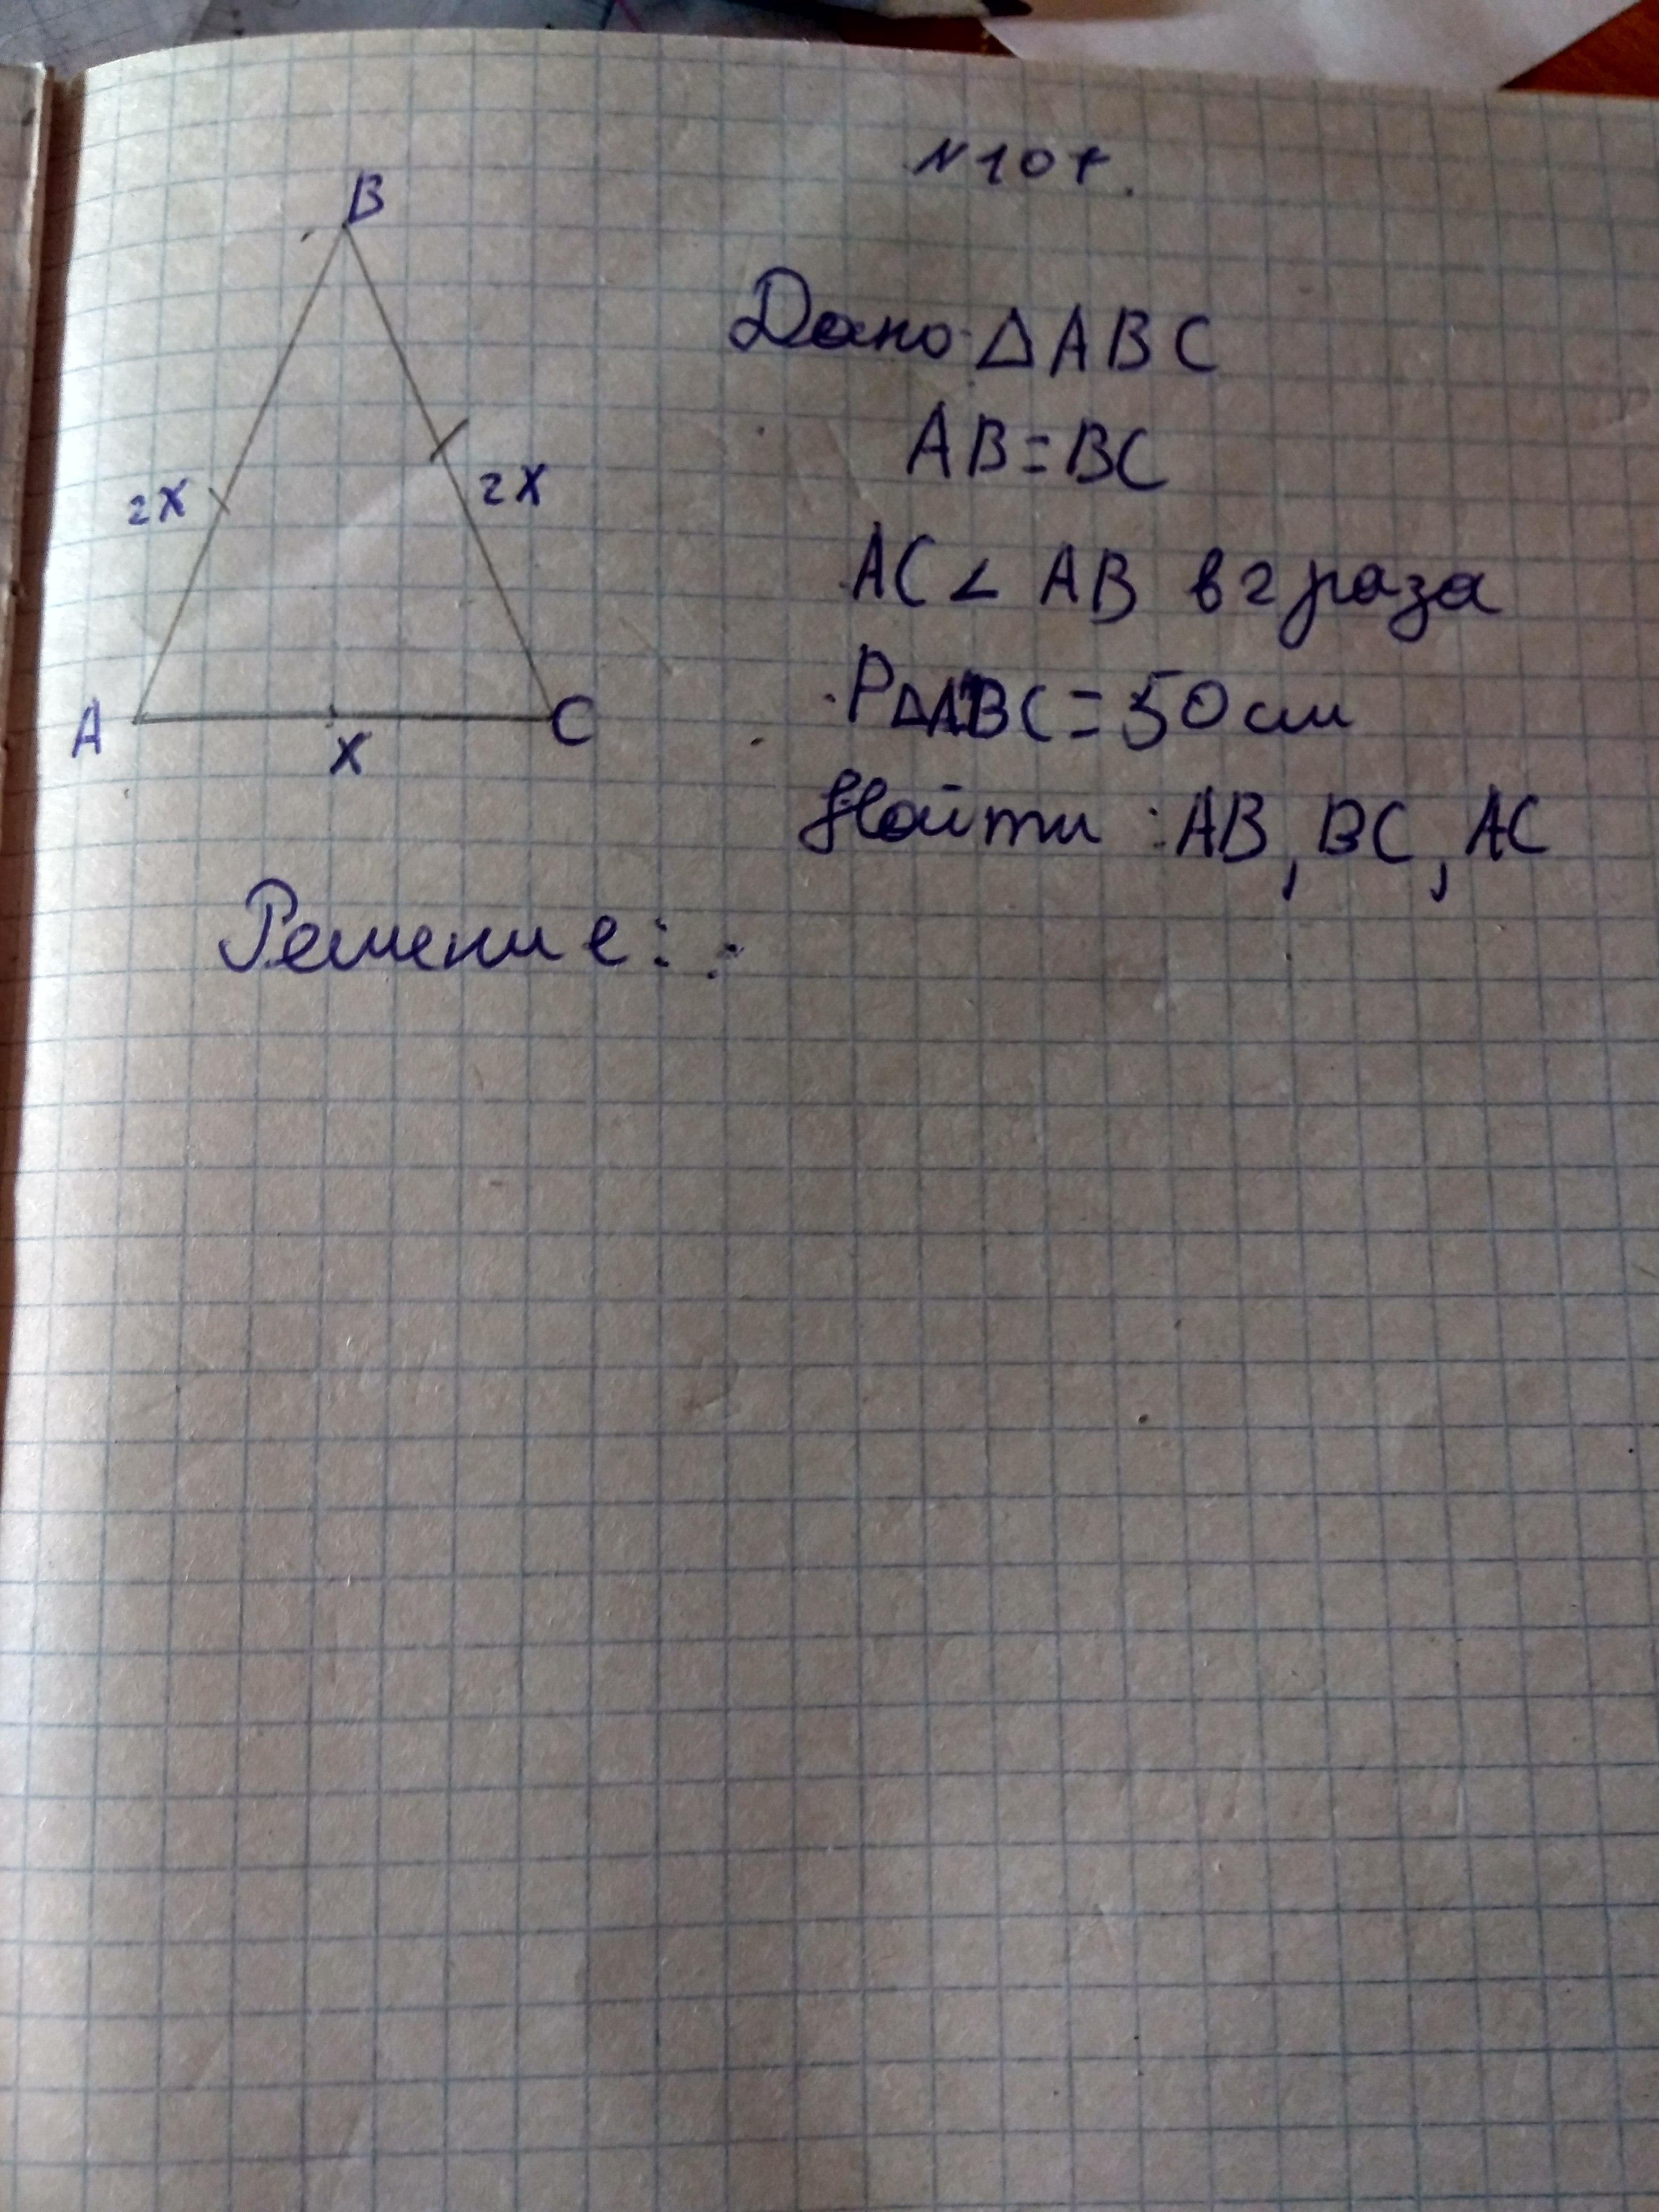 N 107.
B
Дано: △ABC
AB=BC
2x
2x
AC < AB в 2 раза
P△ABC=50 см
A
C
x
Найти: AB, BC, AC
Решение: